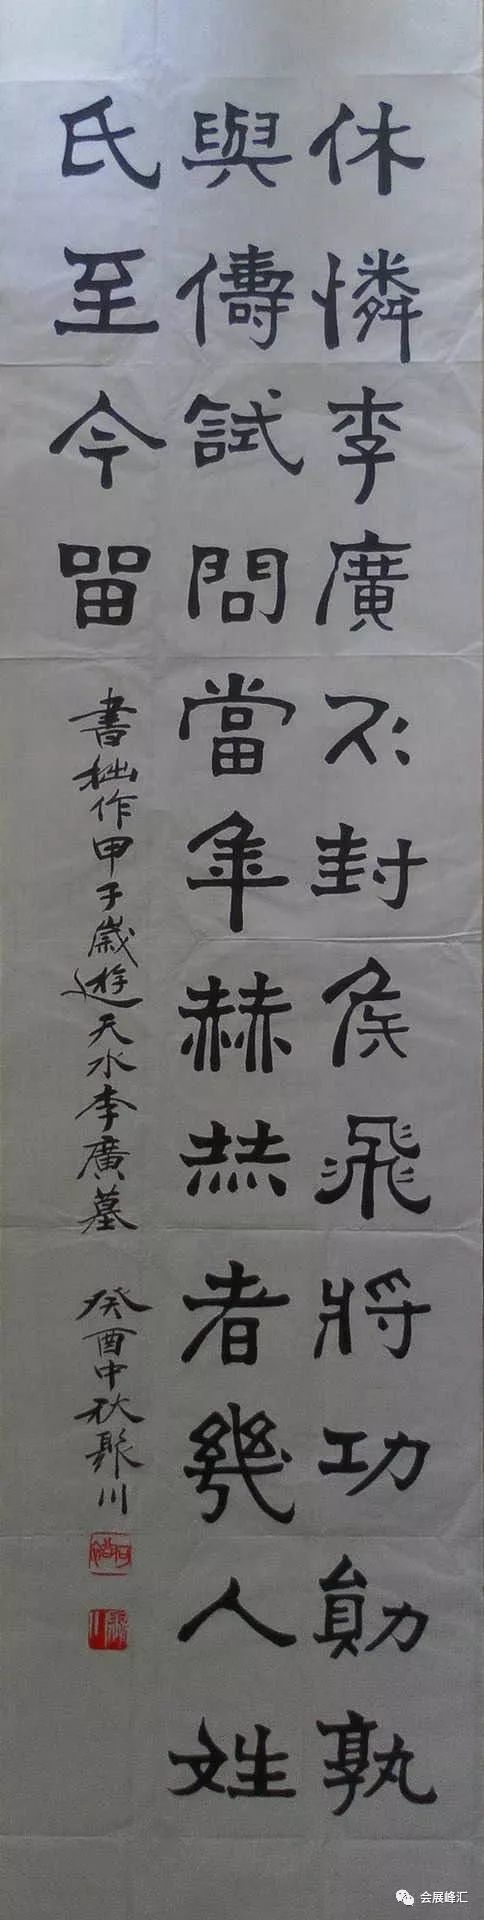 休憐李廣不封侯飛將功勛孰
與儔試問當年赫赫者幾人姓
氏至今留
書拙作甲子歲遊天水李廣墓
癸酉中秋聚川
会展峰汇